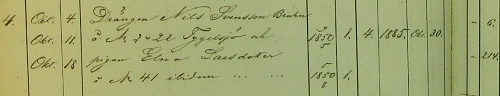 4. Oct. 4 Drängen Nils Svensson Beuken - 6.
Okt. 11. å N. 2 & 22 Tygelsjö ak 9/5 1850 1. 4. 1885. Okt. 30.
Okt. 18 pigan Elna Larsdoter - 214.
å N 41 ibidem ... ... 5/8 1850 1.